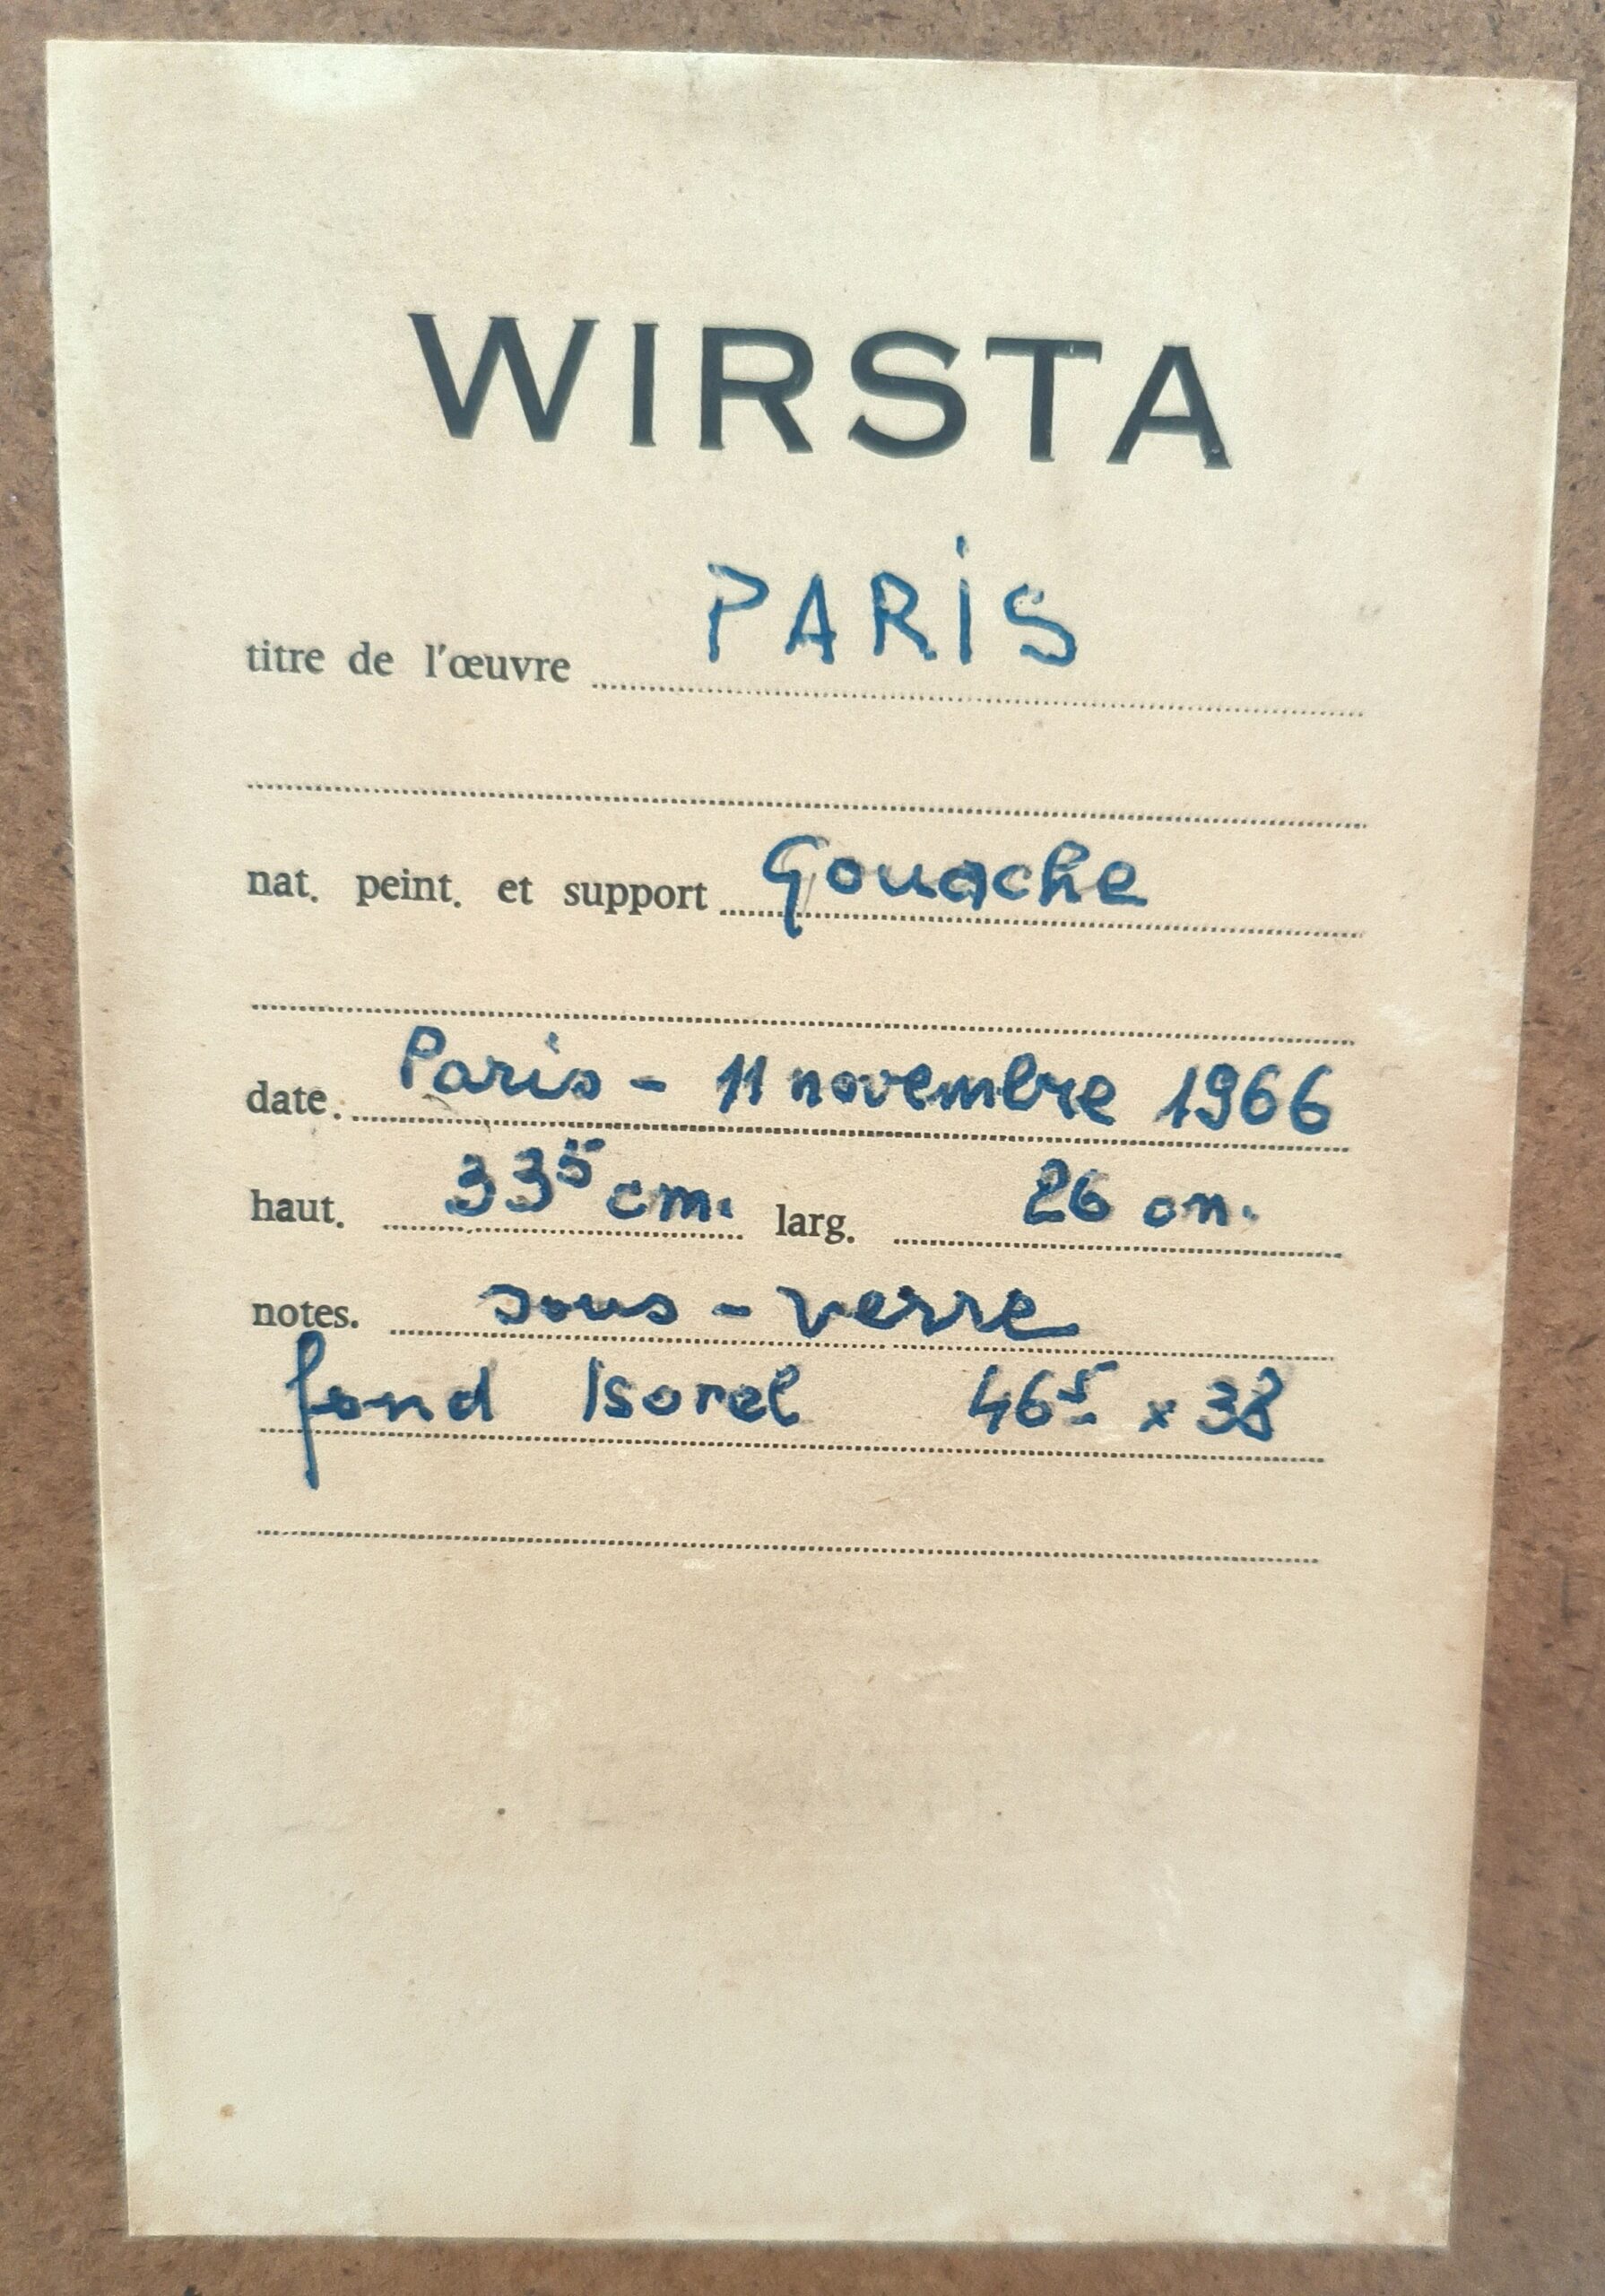 WIRSTA
titre de l'œuvre PARIS
nat. peint. et support Gouache
date. Paris - 11 novembre 1966
haut. 33⁵ cm. larg. 26 cm.
notes. sous - verre
fond Isorel 46⁵ x 38